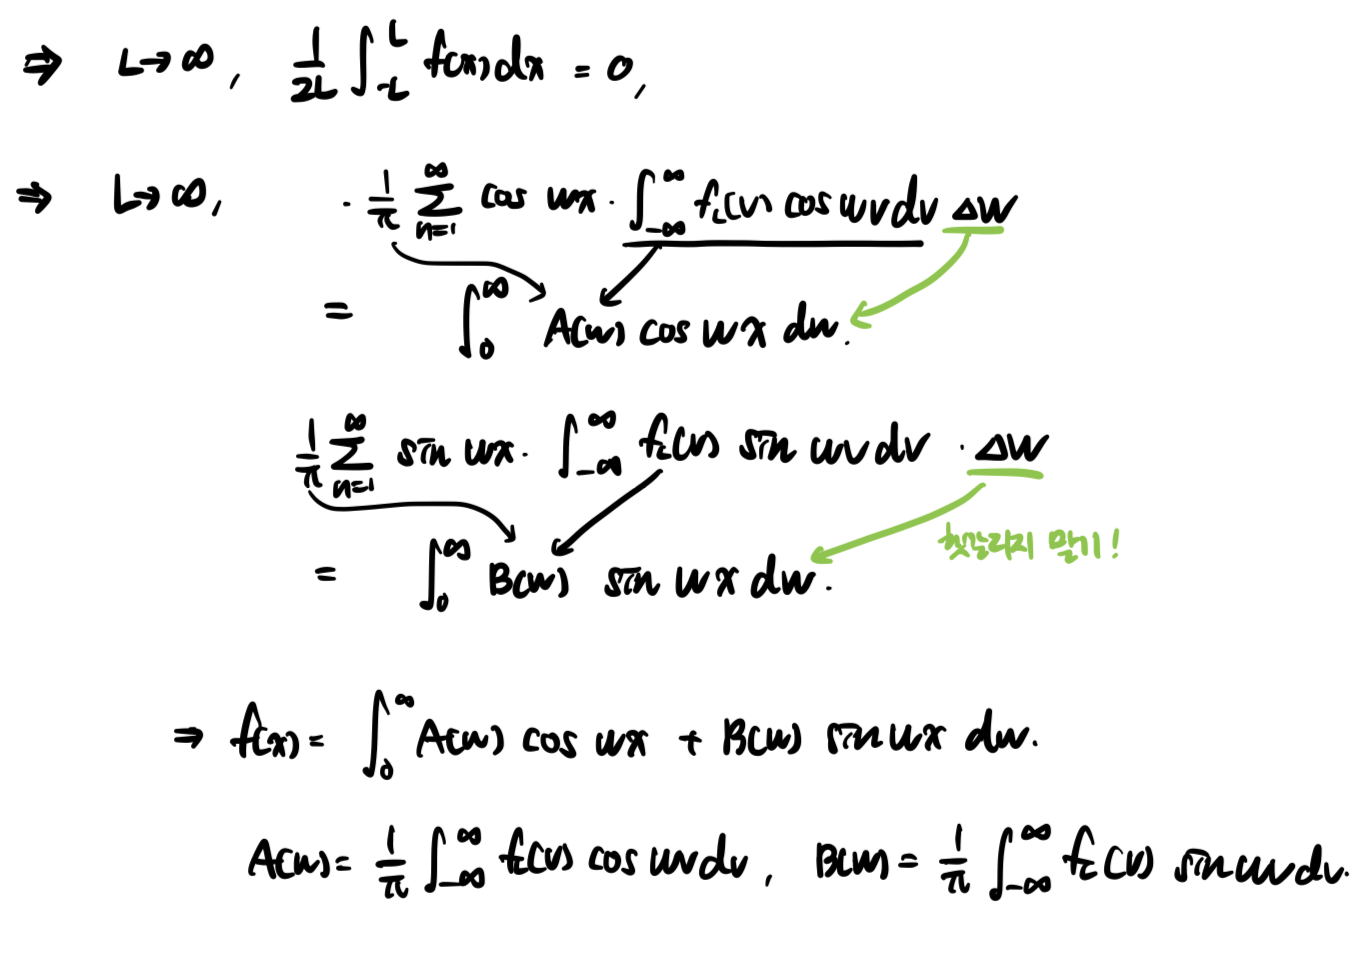 ⇒ L→∞, 1/2L ∫_{-L}^{L} f(x)dx = 0,
⇒ L→∞, · 1/π ∑_{n=1}^{∞} cos wx · ∫_{-∞}^{∞} f_L(v) cos wv dv Δw
= ∫_0^∞ A(w) cos wx dw.
1/π ∑_{n=1}^{∞} sin wx · ∫_{-∞}^{∞} f_L(v) sin wv dv · Δw
헷갈리지 말기!
= ∫_0^∞ B(w) sin wx dw.
⇒ f(x) = ∫_0^∞ A(w) cos wx + B(w) sin wx dw.
A(w) = 1/π ∫_{-∞}^{∞} f_L(v) cos wv dv, B(w) = 1/π ∫_{-∞}^{∞} f_L(v) sin wv dv.